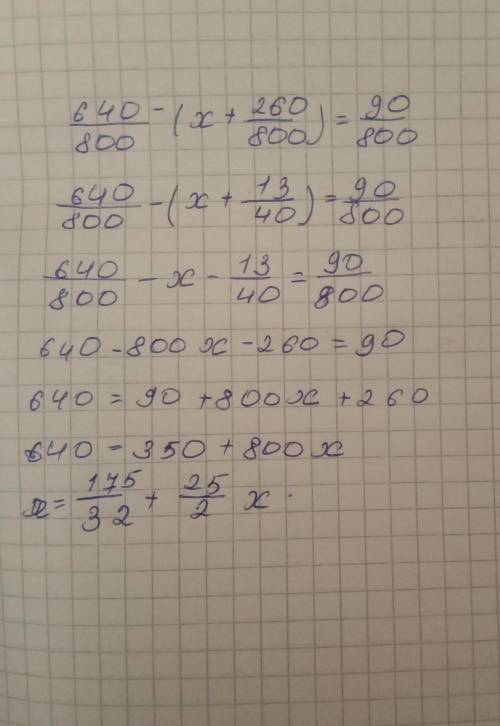 640/800 - (x + 260/800) = 90/800
640/800 - (x + 13/40) = 90/800
640/800 - x - 13/40 = 90/800
640 - 800x - 260 = 90
640 = 90 + 800x + 260
640 = 350 + 800x
x = 175/32 + 25/2 x .